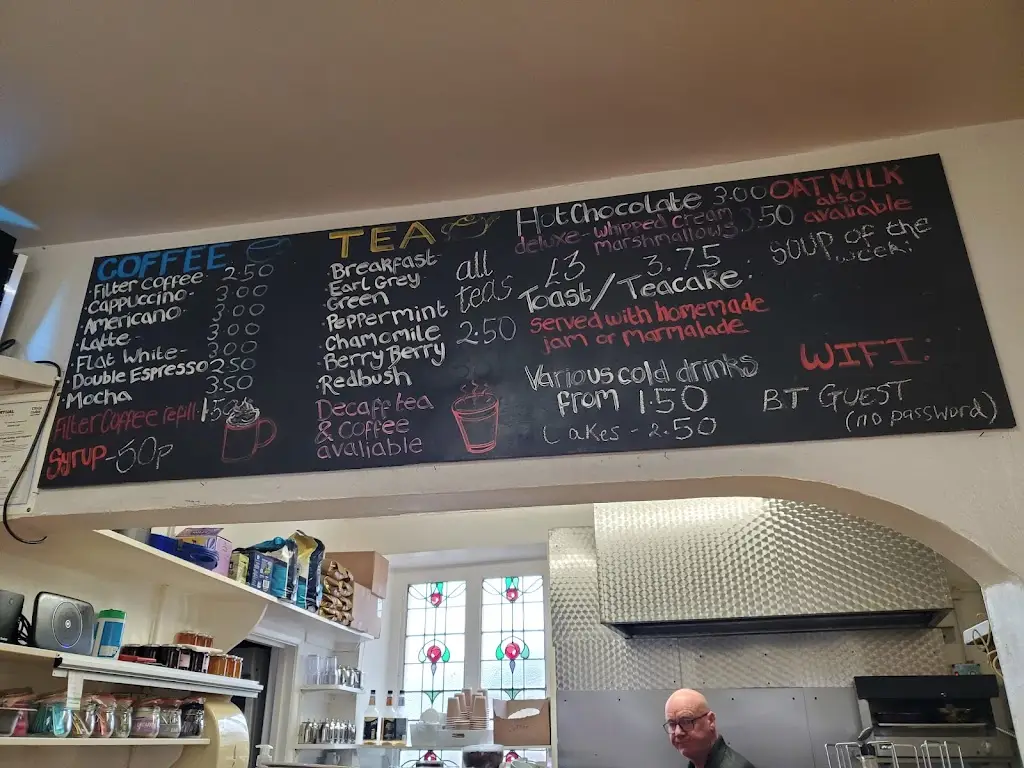 COFFEE
Filter Coffee 2.50
·Cappuccino· 3.00
·Americano· 3.00
·Latte· 3.00
·Flat White- 3.00
·Double Espresso 2.50
·Mocha 3.50
Filter Coffee refill: 1.50
Syrup - 50p
TEA
·Breakfast
·Earl Grey
·Green
·Peppermint
·Chamomile
·Berry Berry
·Redbush
all
teas
2.50
Decaff tea
& coffee
avaliable
Hot Chocolate 3.00
deluxe - whipped cream
marshmallows 3.50
£3 3.75
Toast/Teacake:
served with homemade
jam or marmalade
Various cold drinks
from 1.50
Cakes - 2.50
OAT MILK
also
avaliable
SOUP of the
week:
WIFI:
BT GUEST
(no password)